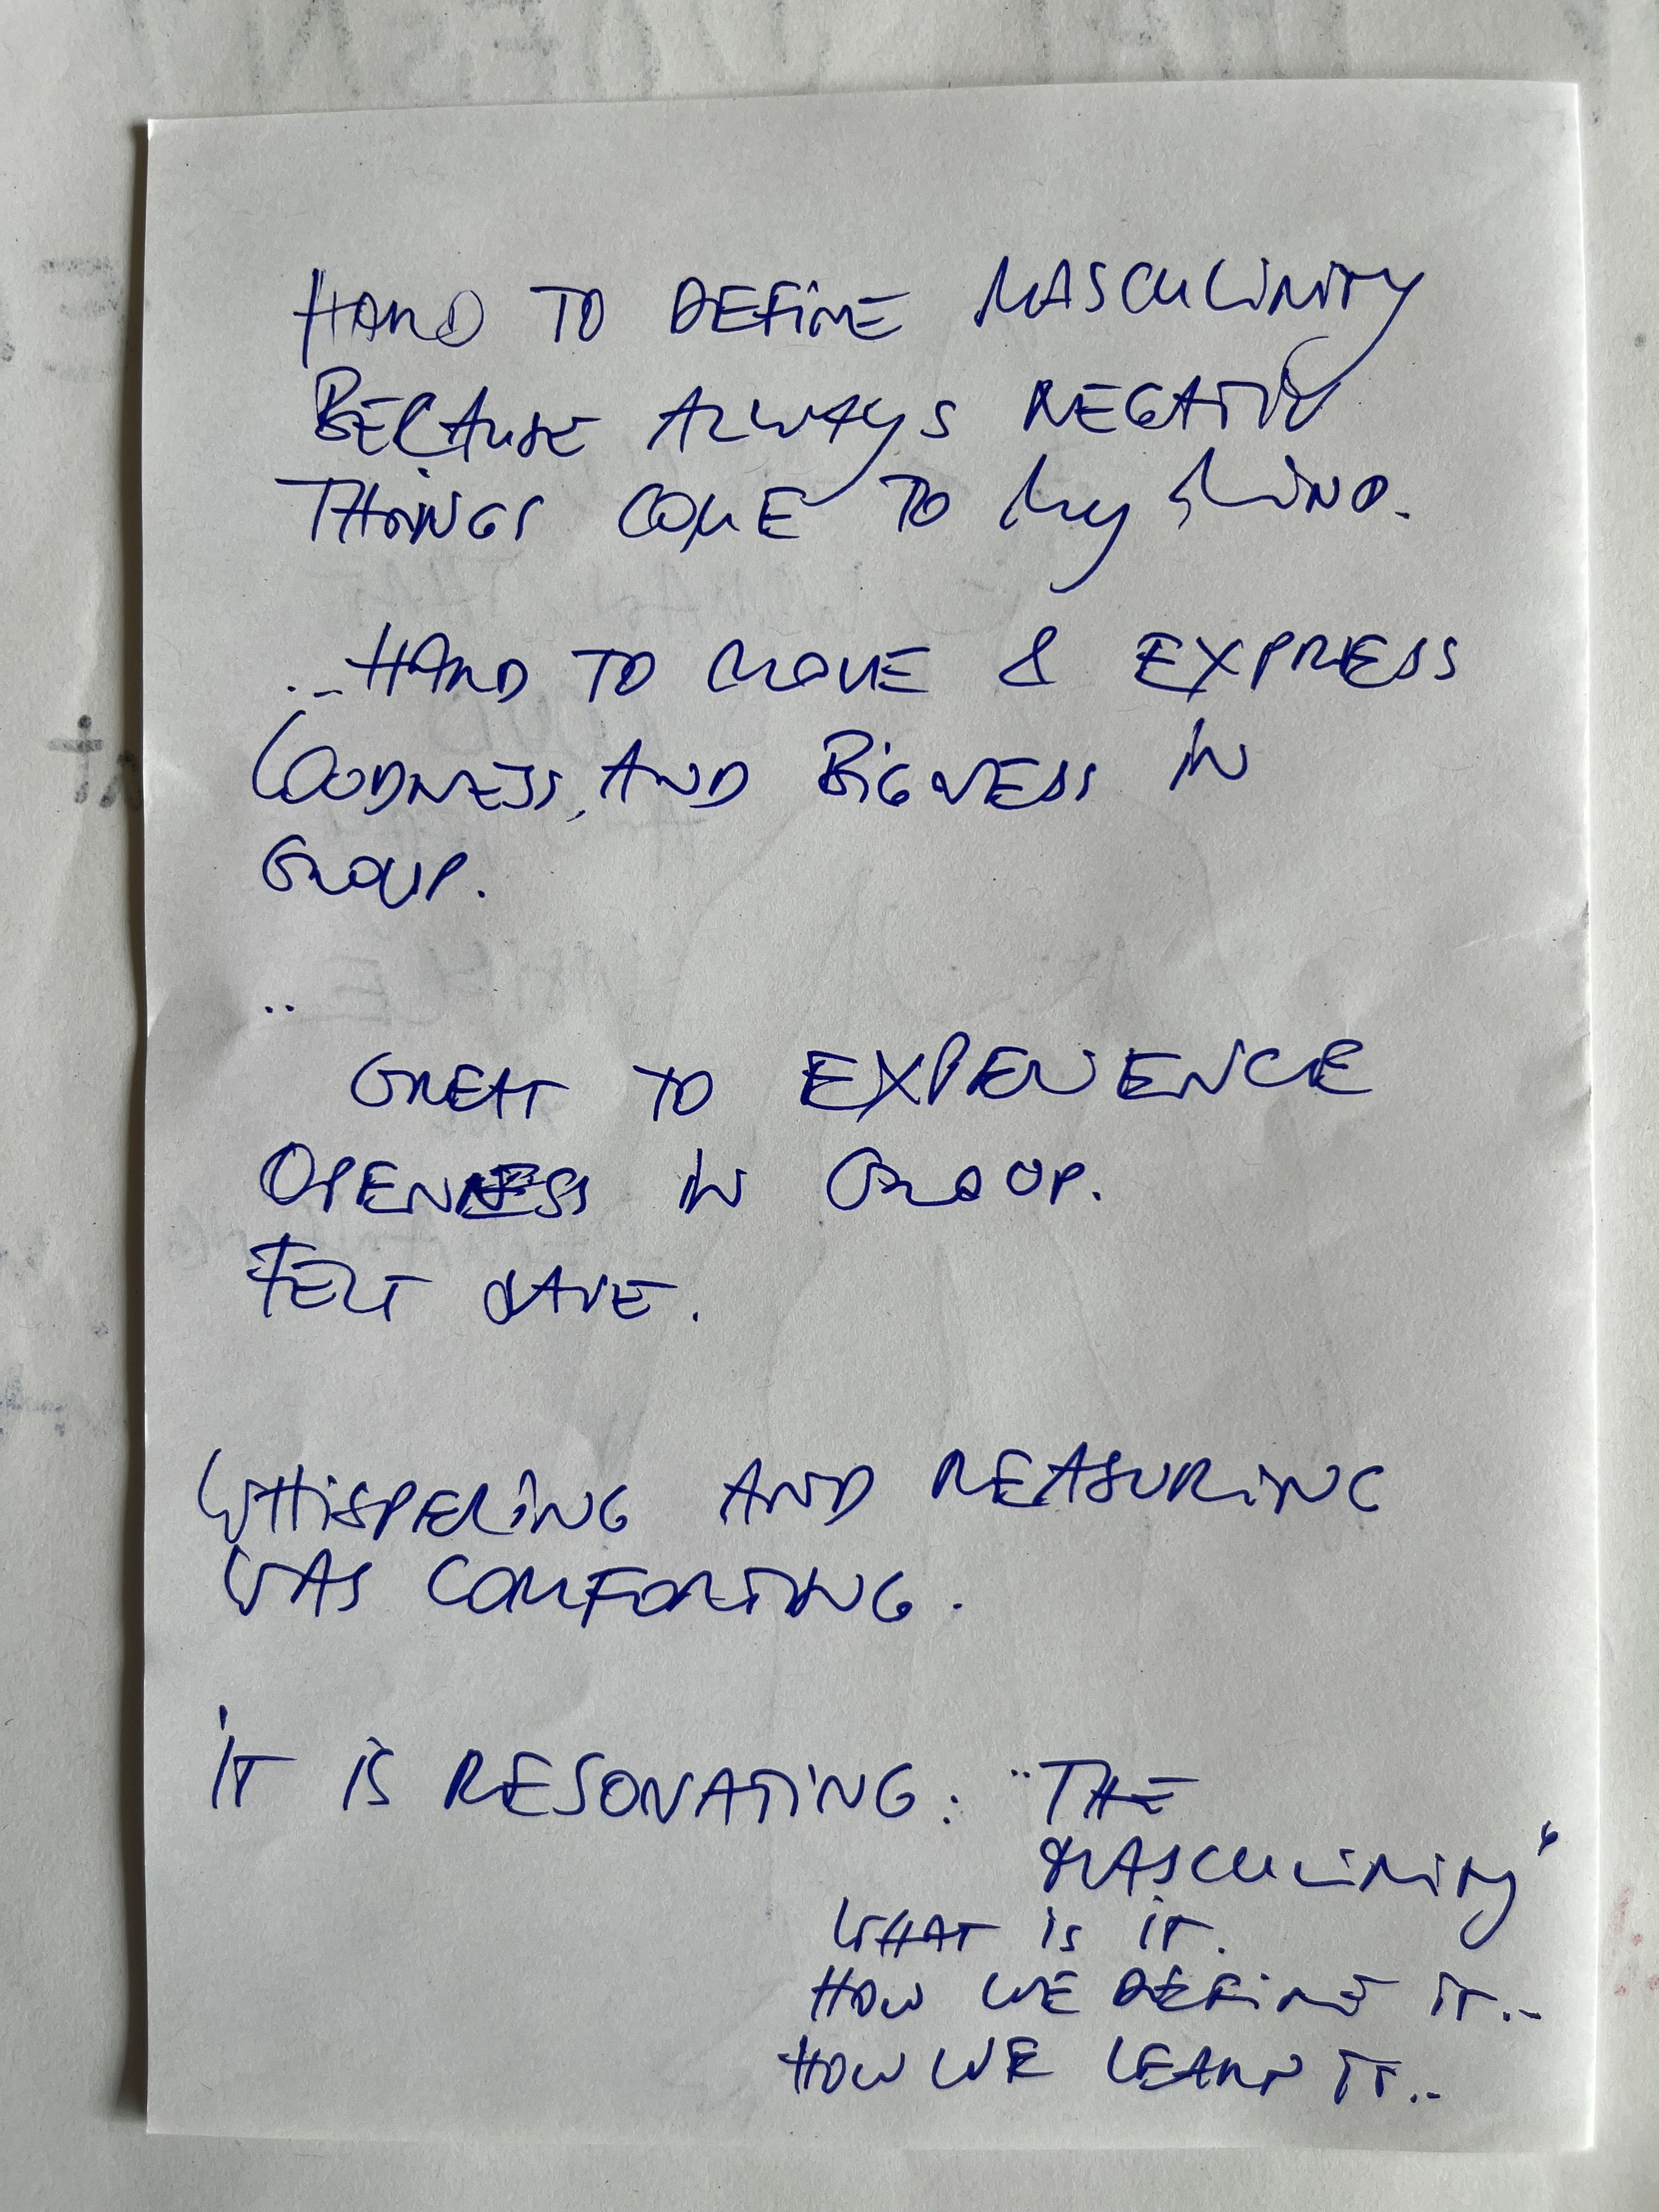 HARD TO DEFINE MASCULINITY
BECAUSE ALWAYS NEGATIV
THINGS COME TO MY MIND.
...HARD TO MOVE & EXPRESS
GOODNESS, AND BIGNESS IN
GROUP.
..
GREAT TO EXPERIENCE
OPENNESS IN GROUP.
FELT SAVE.
WHISPERING AND REASURING
WAS COMFORTING.
IT IS RESONATING: "THE
MASCULINITY"
WHAT IS IT.
HOW WE DEFINE IT...
HOW WE LEARN IT...